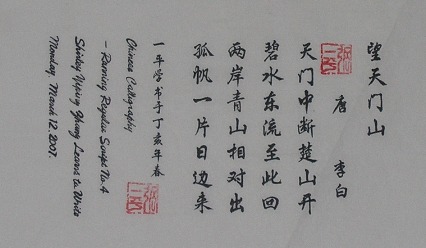 望天门山
唐 李白
天门中断楚山开
碧水东流至此回
两岸青山相对出
孤帆一片日边来
一平学书于丁亥年春
Chinese Calligraphy
- Running Regular Script No.4
Shirley Yiping Zhang Learns to Write
Monday, March 12, 2007.